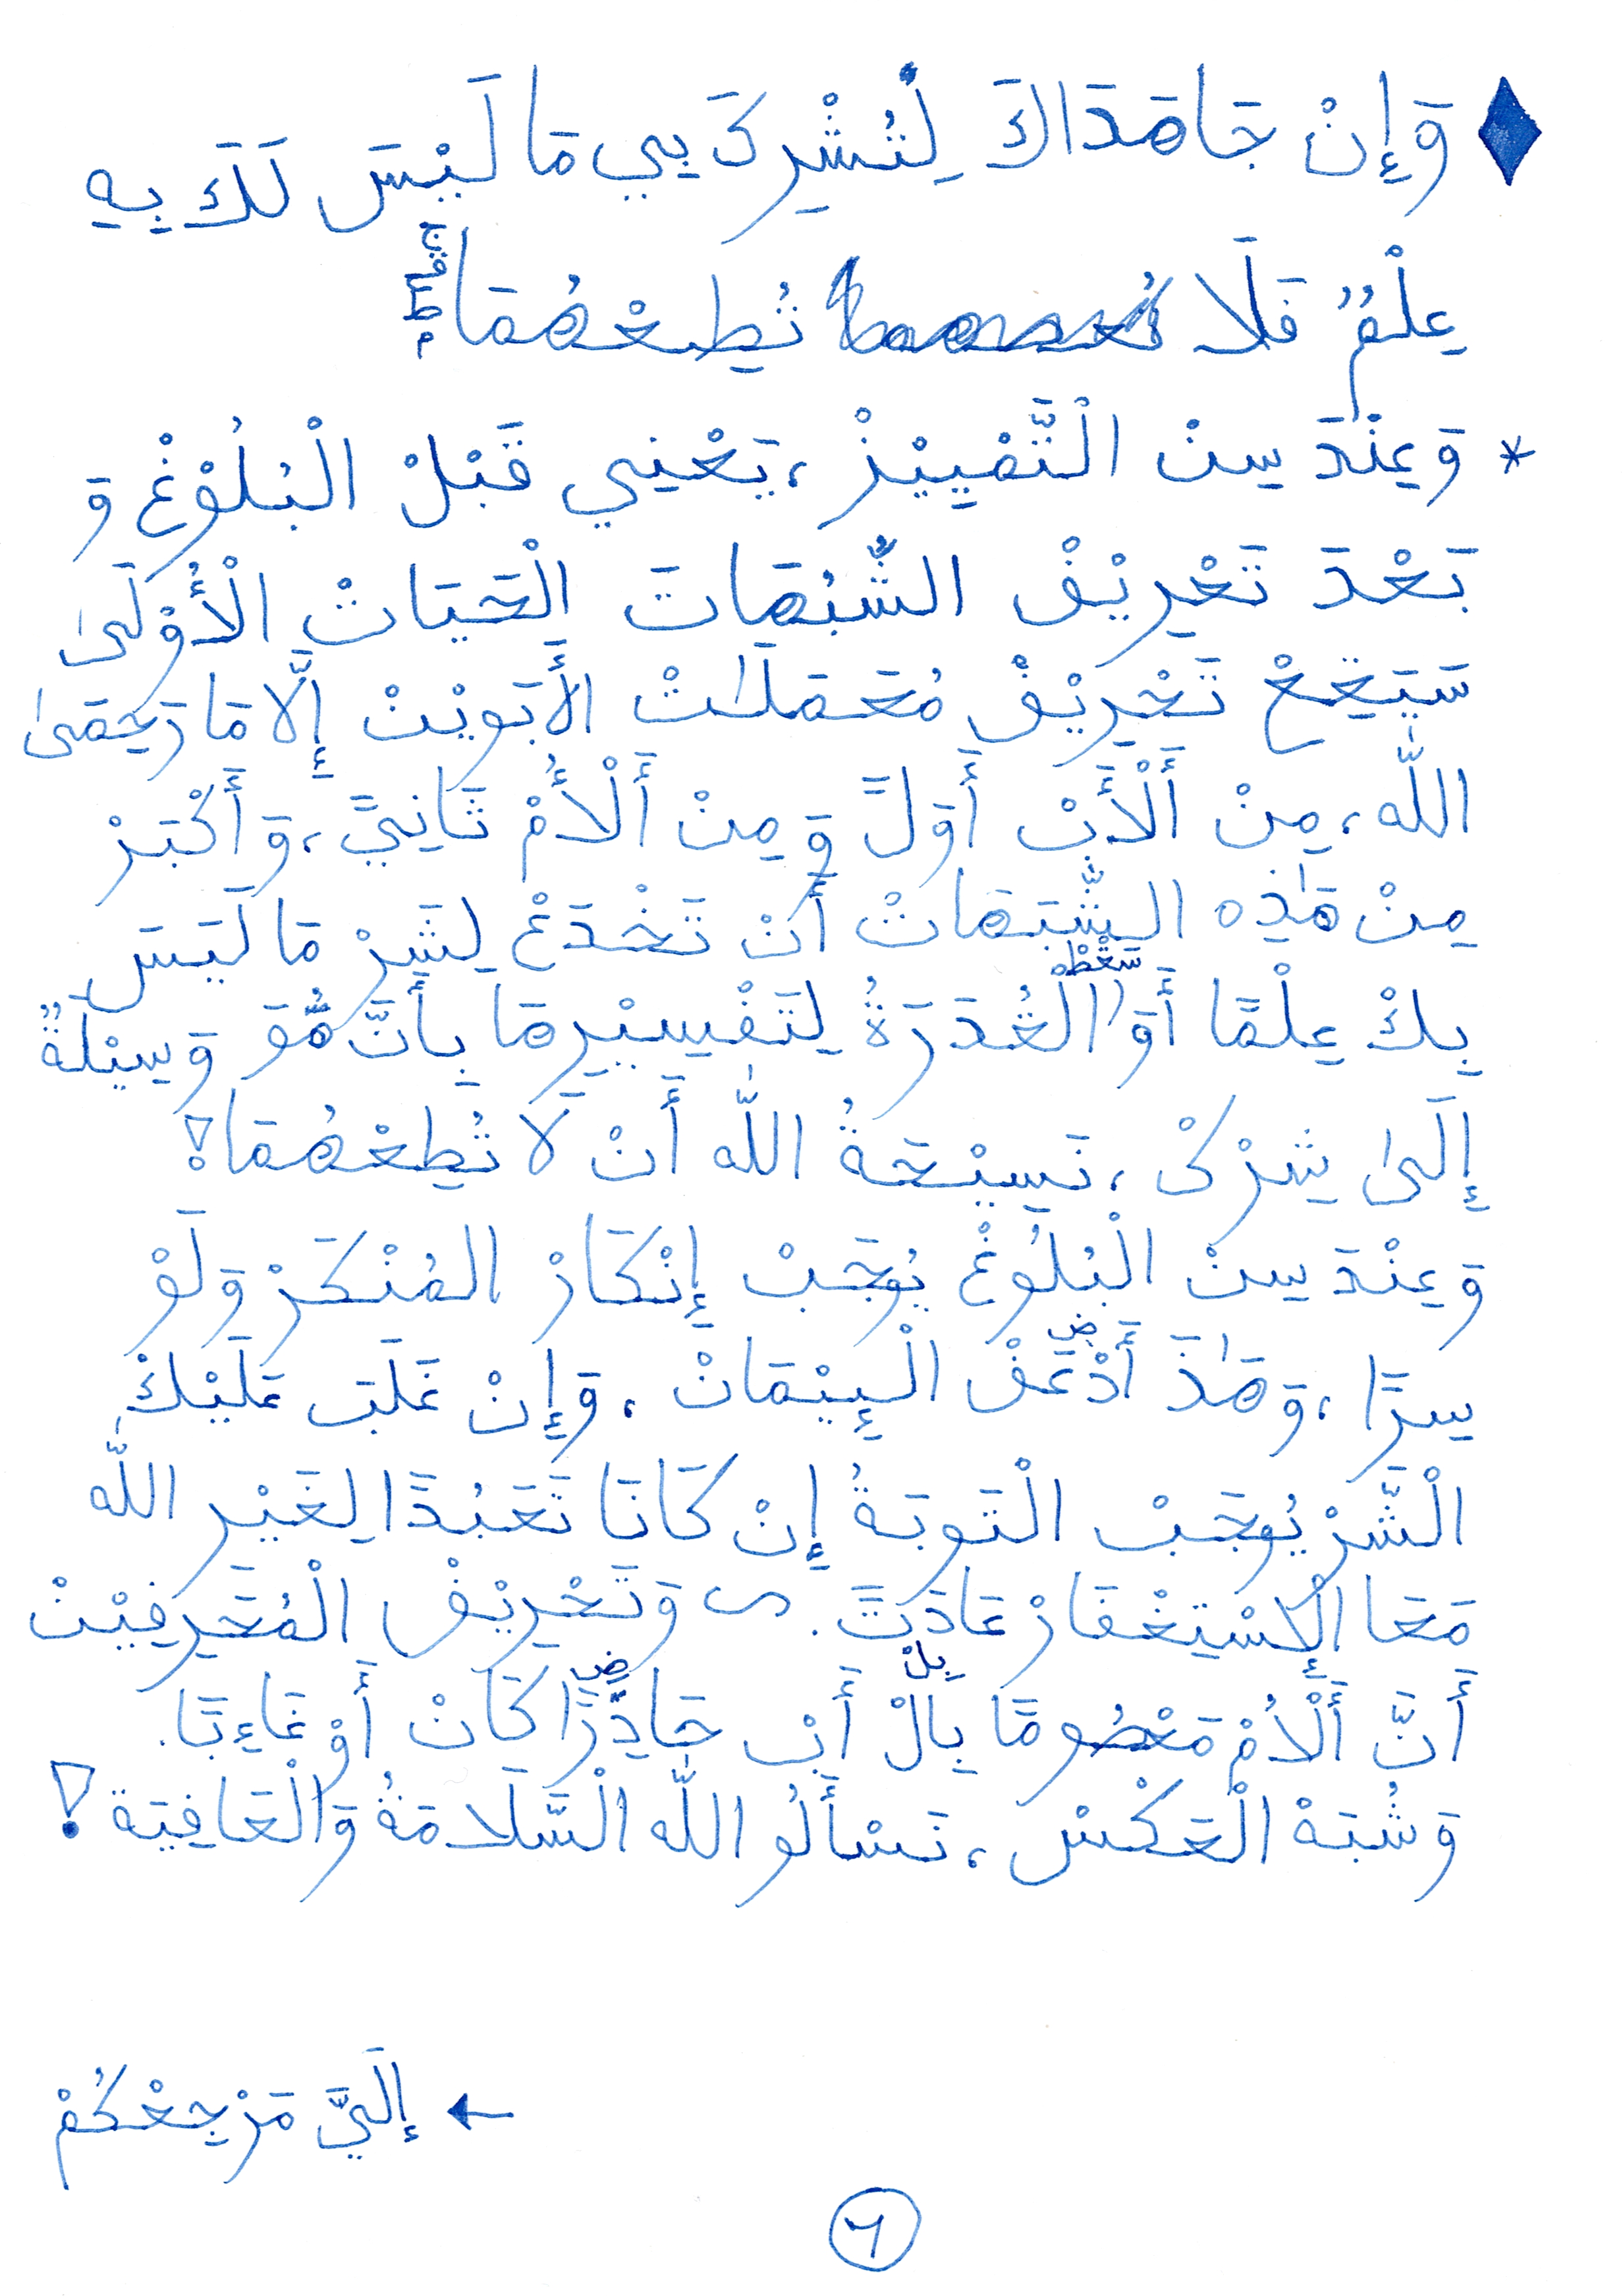 وَإِنْ جَاهَدَاكَ لِتُشْرِكَ بِي مَا لَيْسَ لَكَ بِهِ
عِلْمٌ فَلَا تُطِعْهُمَا
* وَعِنْدَ سِنْ الْتَّمْيِيْزْ، يَعْنِي قَبْلْ الْبُلُوْغْ وَ
بَعْدَ تَعْرِيْفْ الشُّبُهَاتَ الْحَيَاتْ الْأُوْلَىٰ
تَعْرِيْفْ مُعَمَلَاتْ الْأَبَوِيْنْ إِلَّا مَا رَحِمَىٰ
اللّٰه، مِنْ أَلْأَبْ أَوَلً وَ مِنْ أَلْأُمْ ثَانِيً، وَ أَكْبَرْ
مِنْ هَٰذِه الشُّبَهَاتْ أَنْ تَخْدَعْ لِشَرْ مَا لَيَسَ
بِكْ عِلْمًا أَوَ الْقُدَرَةُ لِتَفْسِيْرِهَا بِأَنَّ هُّوَ وَسِيْلَةٌ
إِلَىٰ شِرْكْ، نَسِيْحَةُ اللّٰه أَنْ لَا تُطِعْهُمَا!
وَعِنْدَ سِنْ الْبُلُوغْ يُوجَبْ إِنْكَارْ المُنْكَرْ وَلَوْ
سِرًّا، وَ هَٰذَ أَدْعَفْ ض الْإِيْمَانْ، وَإِنْ غَلَبَ عَلَيْكْ
الْشَّرْ يُوجَبْ الْتَوبَةُ إِنْ كَانَا تَعَبُدًا لِغَيْرِ اللّٰه
مَعَا الْإِسْتِغْفَارْ عَادَتً. وَتَعْرِيْفْ الْمُعَرِفِيْنْ
أَنَّ أَلْأُمْ مَعْصُومًا بِالْ بِلْ أَبْ حَادِرًا ض كَانْ أَوْ غَاءِبًا.
وَشُبَهْ الْعَكْسْ، نَسْأَلُو اللّٰه الْسَّلَامَةُ وَالْعَافِيَة!
← إِلَيَّ مَرْجِعْكُمْ
٦